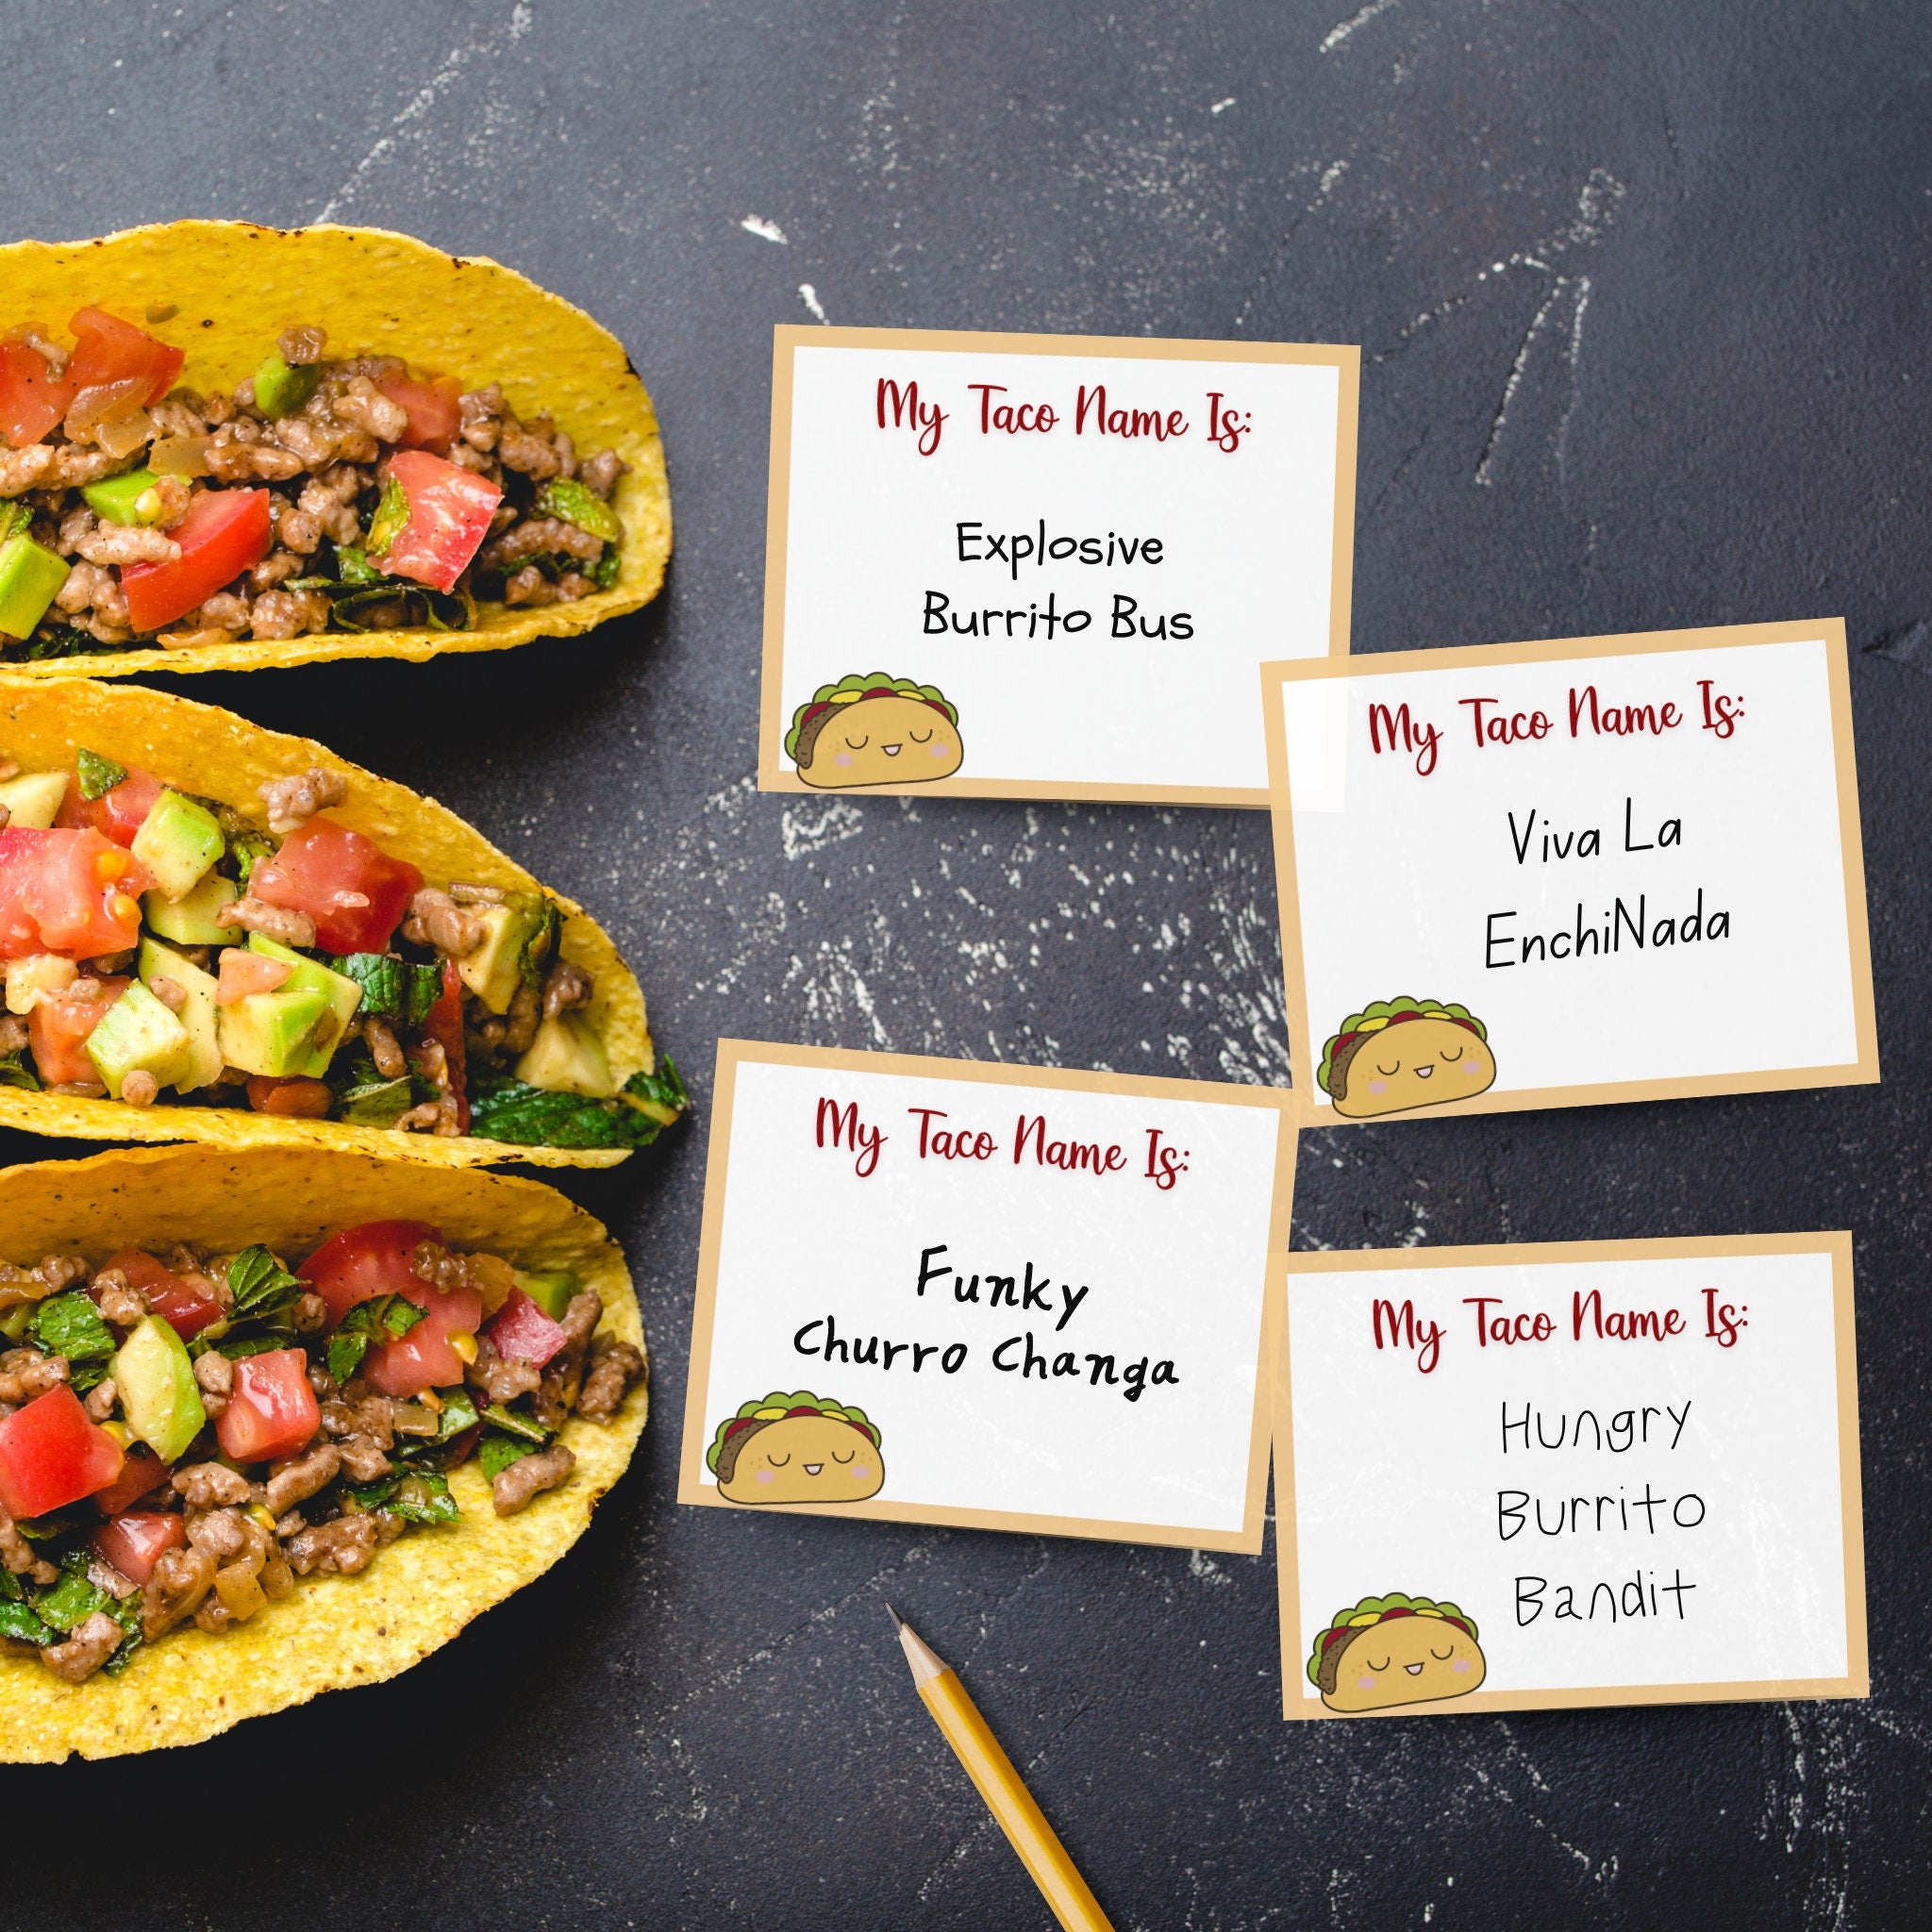 My Taco Name Is:
Explosive
Burrito Bus
My Taco Name Is:
Viva La
EnchiNada
My Taco Name Is:
Funky
Churro Changa
My Taco Name Is:
Hungry
Burrito
Bandit